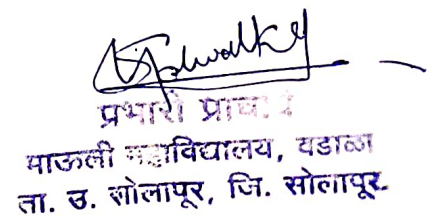 प्रभारी
माऊली महाविद्यालय, वडाळा
ता. उ. सोलापूर, जि. सोलापूर.